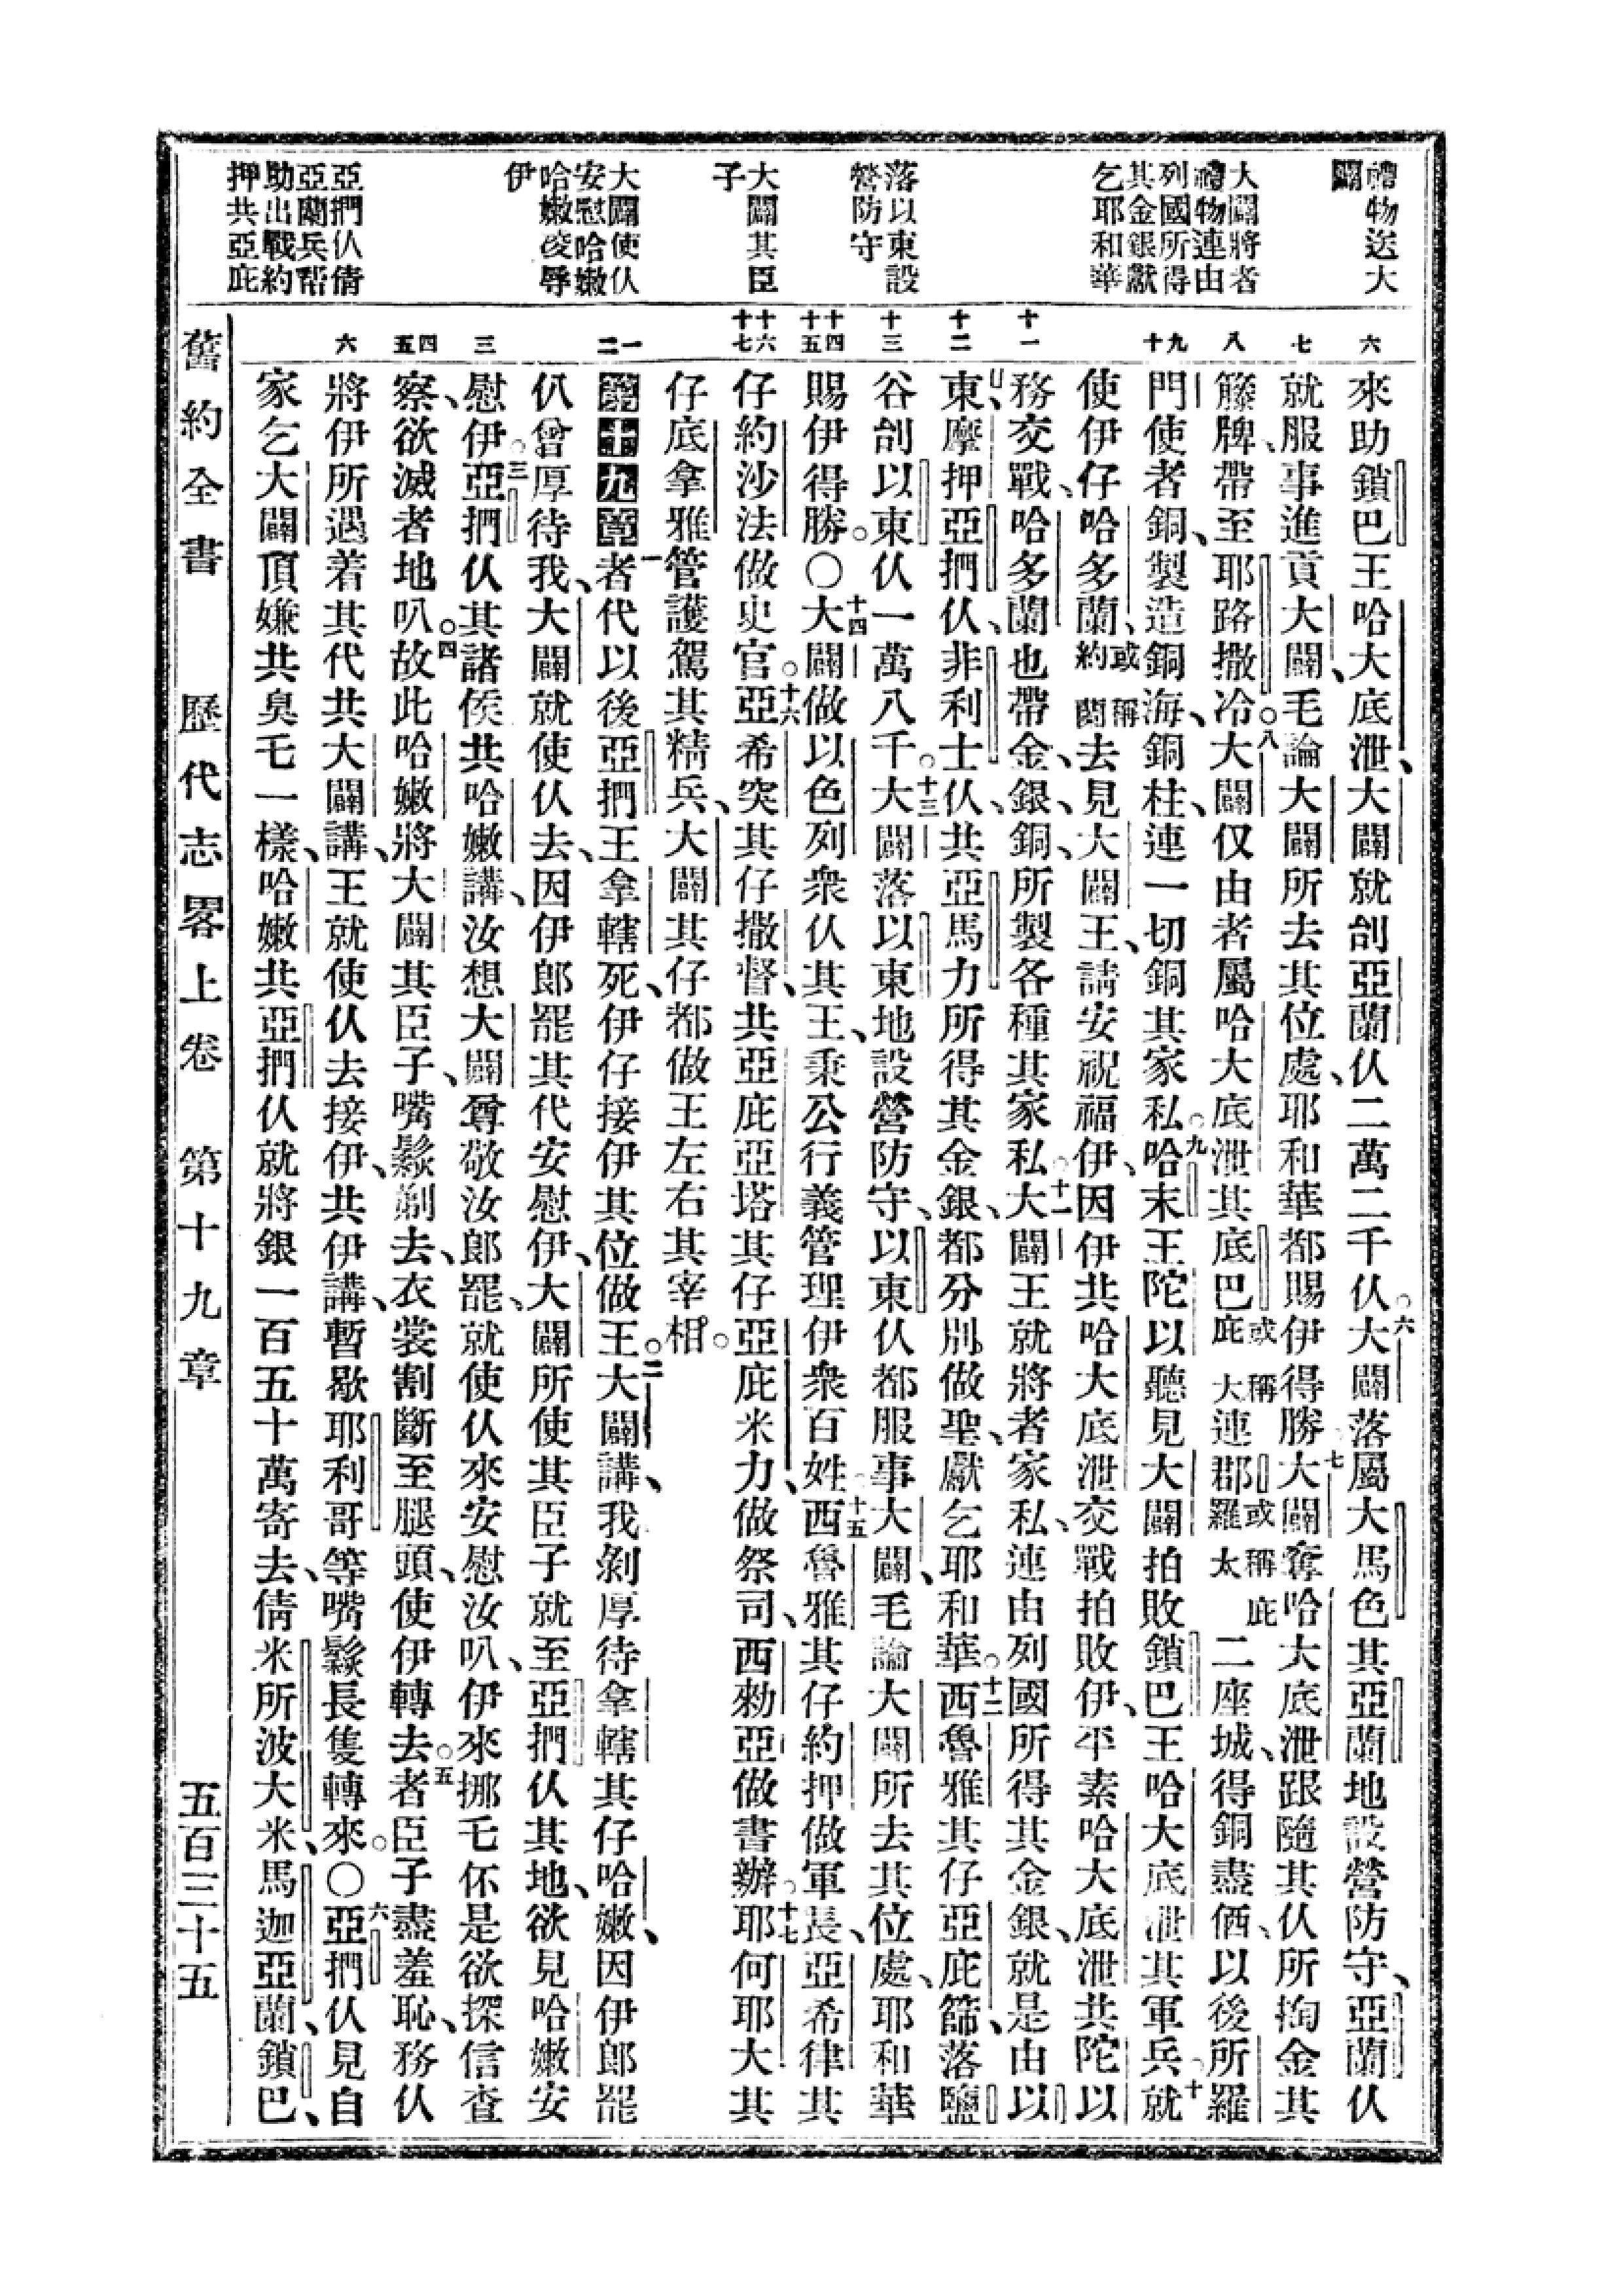 禮物送大
闢
大闢將者
禮物連由
列國所得
其金銀獻
乞耶和華
落以東設
營防守
大闢其臣
子
大闢使仈
安慰哈嫩
哈嫩凌辱
伊
亞捫仈倩
亞蘭兵幫
助出戰約
押共亞庇
六
七
八
九
十
十一
十二
十三
十四
十五
十六
十七
一
二
三
四
五
六
來助鎖巴王哈大底泄、大闢就刣亞蘭仈二萬二千仈。六大闢落屬大馬色其亞蘭地設營防守、亞蘭仈
就服事進貢大闢、毛論大闢所去其位處、耶和華都賜伊得勝。七大闢奪哈大底泄跟隨其仈所掏金其
籐牌、帶至耶路撒冷。八大闢仅由者屬哈大底泄其底巴或稱庇大連郡或稱庇羅太二座城、得銅盡価、以後所羅
門使者銅、製造銅海、銅柱、連一切銅其家私。九哈末王陀以聽見大闢拍敗鎖巴王哈大底泄其軍兵、十就
使伊仔哈多蘭、或稱約蘭去見大闢王、請安祝福伊、因伊共哈大底泄交戰拍敗伊、平素哈大底泄共陀以
務交戰、哈多蘭也帶金、銀、銅、所製各種其家私。十一大闢王就將者家私、連由列國所得其金銀、就是由以
東、摩押、亞捫仈、非利士仈、共亞馬力所得其金銀、都分別做聖、獻乞耶和華。十二西魯雅其仔亞庇篩、落鹽
谷刣以東仈一萬八千。十三大闢落以東地設營防守、以東仈都服事大闢、毛論大闢所去其位處、耶和華
賜伊得勝。○十四大闢做以色列衆仈其王、秉公行義管理伊衆百姓、十五西魯雅其仔約押做軍長、亞希律其
仔約沙法做史官。十六亞希突其仔撒督、共亞庇亞塔其仔亞庇米力、做祭司、西勑亞做書辦。十七耶何耶大其
仔底拿雅管護駕其精兵、大闢其仔都做王左右其宰相。
第十九章一者代以後亞捫王拿轄死、伊仔接伊其位做王。二大闢講、我剝厚待拿轄其仔哈嫩、因伊郎罷
仈曾厚待我、大闢就使仈去、因伊郎罷其代安慰伊、大闢所使其臣子就至亞捫仈其地、欲見哈嫩安
慰伊。三亞捫仈其諸侯共哈嫩講、汝想大闢尊敬汝郎罷、就使仈來安慰汝叭、伊來挪乇伓是欲探信查
察、欲滅者地叭。四故此哈嫩將大闢其臣子、嘴鬚剃去、衣裳割斷至腿頭、使伊轉去。五者臣子盡羞恥、務仈
將伊所遇着其代共大闢講、王就使仈去接伊、共伊講、暫歇耶利哥、等嘴鬚長隻轉來。○六亞捫仈見自
家乞大闢頂嫌共臭乇一樣、哈嫩共亞捫仈就將銀一百五十萬寄去、倩米所波大米、馬迦亞蘭、鎖巴、
舊約全書　歷代志畧上卷　第十九章　五百三十五